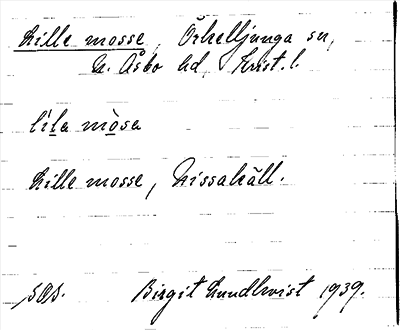 Lille mosse, Örkelljunga sn,
N. Åsbo hd, Krist. l.
lila mosa
Lille mosse, Kissakäll.
SOS. Birgit Lundkvist 1939.